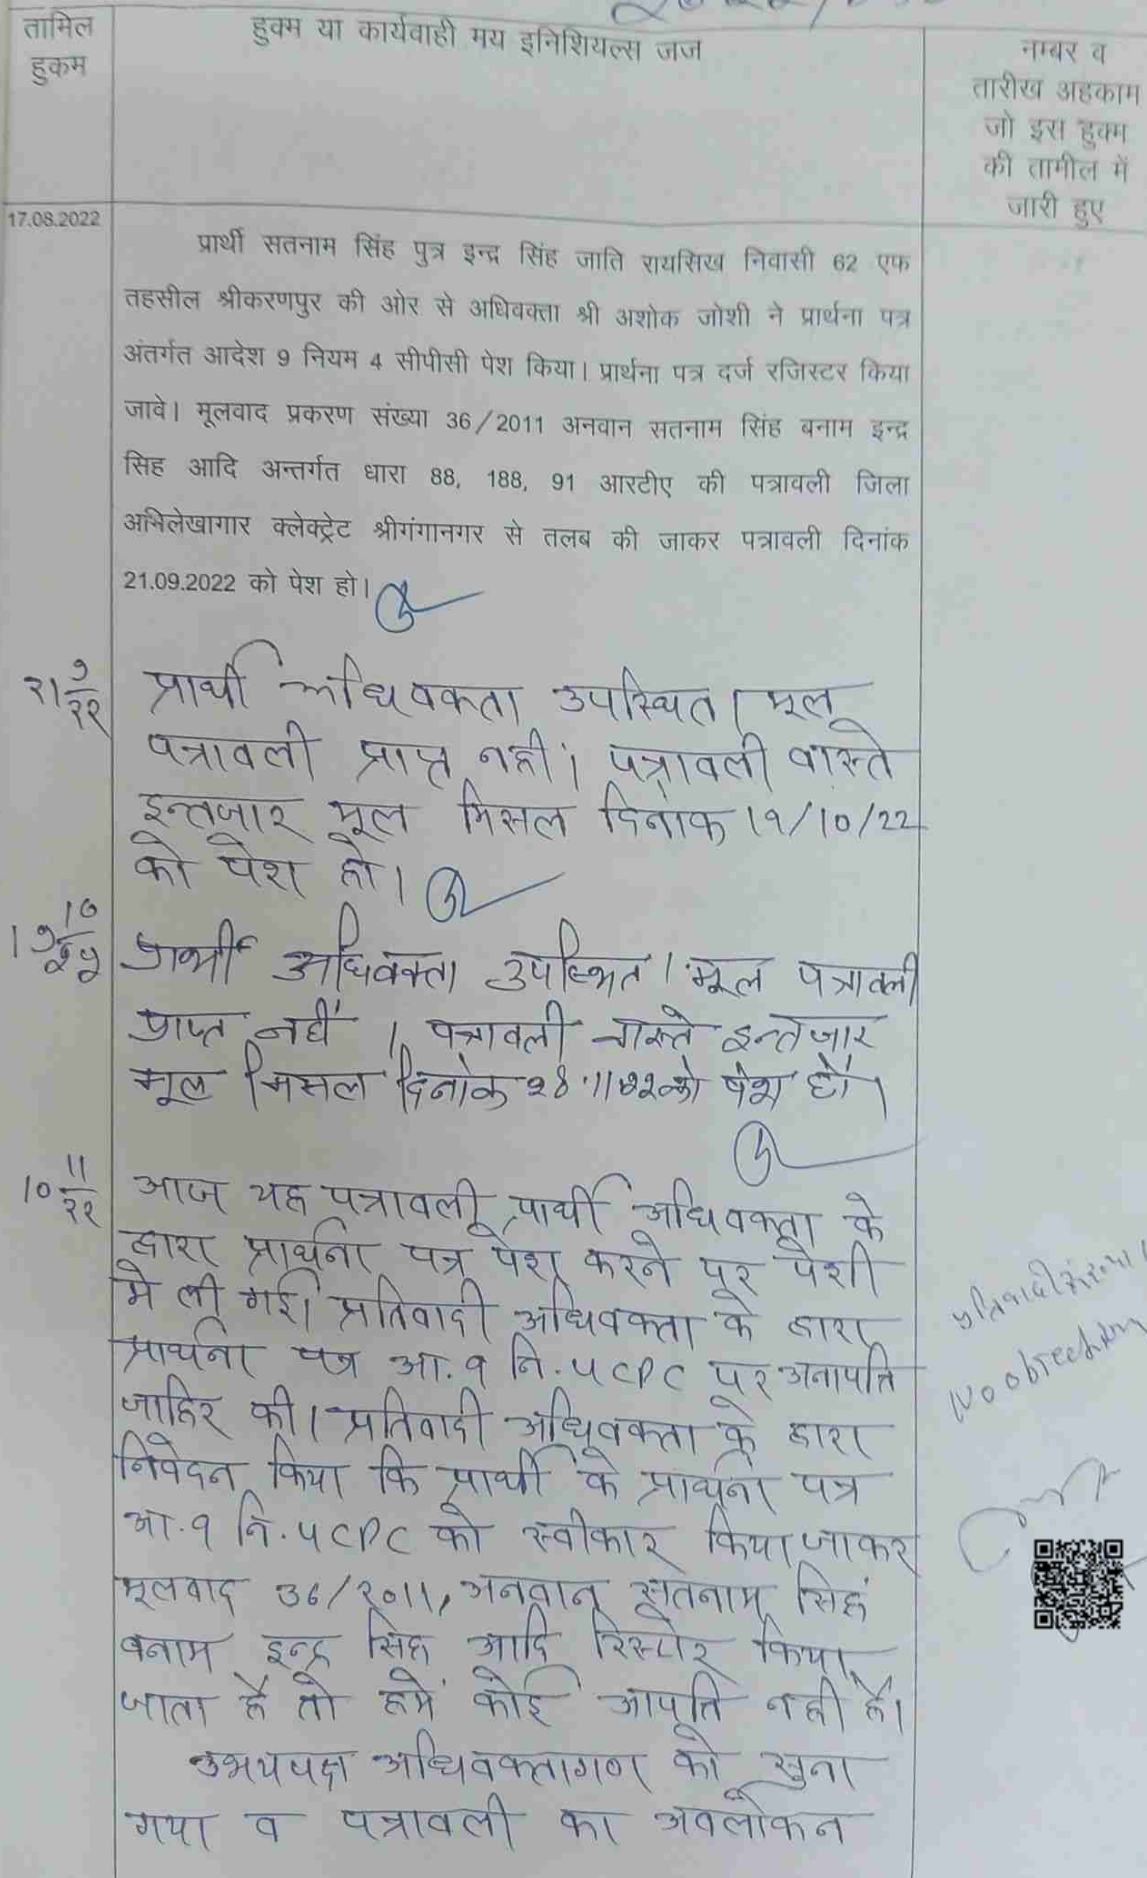 तामिल
हुकम
हुक्म या कार्यवाही मय इनिशियल्स जज
नम्बर व
तारीख अहकाम
जो इस हुक्म
की तामील में
जारी हुए
17.08.2022
प्रार्थी सतनाम सिंह पुत्र इन्द्र सिंह जाति रायसिख निवासी 62 एफ
तहसील श्रीकरणपुर की ओर से अधिवक्ता श्री अशोक जोशी ने प्रार्थना पत्र
अंतर्गत आदेश 9 नियम 4 सीपीसी पेश किया। प्रार्थना पत्र दर्ज रजिस्टर किया
जावे। मूलवाद प्रकरण संख्या 36/2011 अनवान सतनाम सिंह बनाम इन्द्र
सिह आदि अन्तर्गत धारा 88, 188, 91 आरटीए की पत्रावली जिला
अभिलेखागार क्लेक्ट्रेट श्रीगंगानगर से तलब की जाकर पत्रावली दिनांक
21.09.2022 को पेश हो।
२१ ९/२२ प्रार्थी अधिवक्ता उपस्थित। मूल
पत्रावली प्राप्त नही। पत्रावली वास्ते
इन्तजार मूल मिसल दिनांक 19/10/22
को पेश हो।
प्रार्थी अधिवक्ता उपस्थित। मूल पत्रावली
प्राप्त नहीं। पत्रावली वास्ते इन्तजार
मूल मिसल दिनांक को पेश हो।
10 11/२२ आज यह पत्रावली प्रार्थी अधिवक्ता के
द्वारा प्रार्थना पत्र पेश करने पर पेशी
मे ली गई। प्रतिवादी अधिवक्ता के द्वारा
प्रार्थना पत्र आ.९ नि.५ CPC पर अनापति
जाहिर की। प्रतिवादी अधिवक्ता के द्वारा
निवेदन किया कि प्रार्थी के प्रार्थना पत्र
आ.९ नि.५ CPC को स्वीकार किया जाकर
मूलवाद 36/२०११, अनवान सतनाम सिहं
बनाम इन्द्र सिह आदि रिस्टोर किया
जाता है तो हमें कोई आपति नही है।
उभयपक्ष अधिवक्तागण को सुना
गया व पत्रावली का अवलोकन
प्रतिवादी संख्या 1
No objection